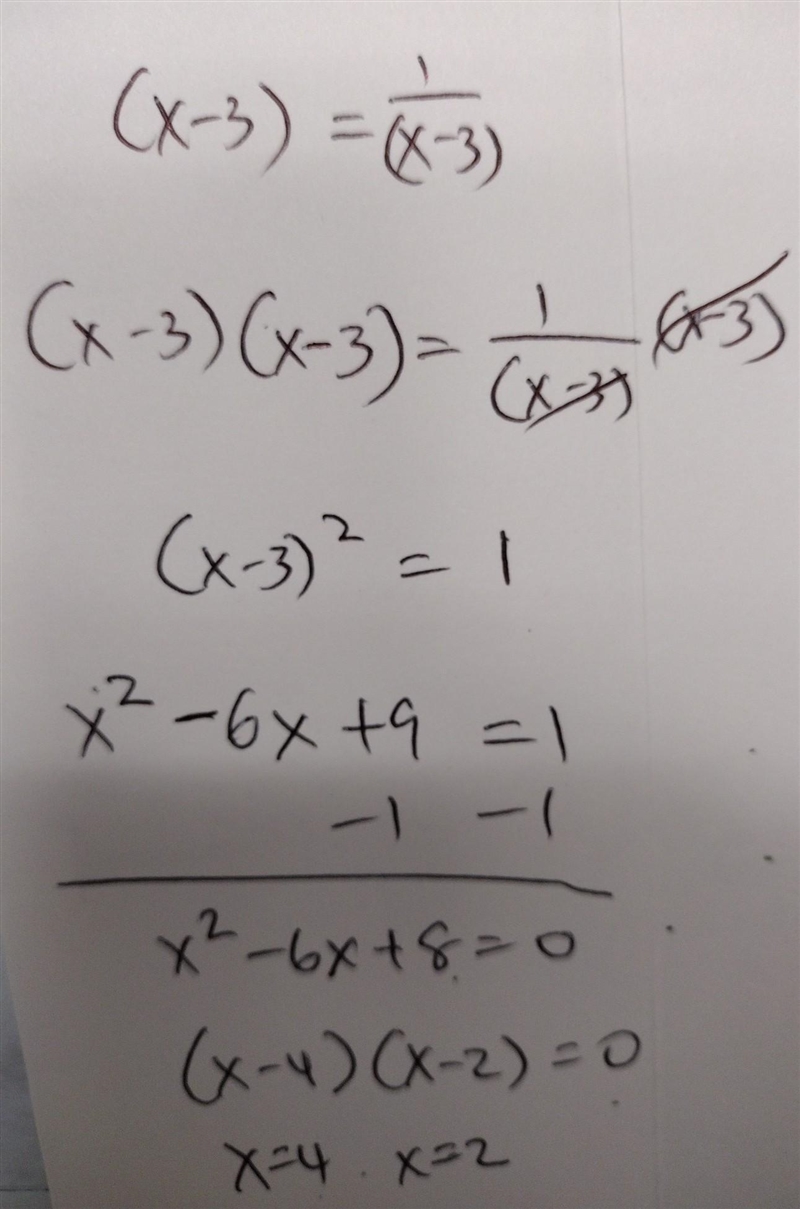 (x-3) = 1/(x-3)
(x-3)(x-3) = 1/(x-3) (x-3)
(x-3)² = 1
x² -6x +9 = 1
-1 -1
x² -6x +8 = 0
(x-4)(x-2) = 0
x=4 x=2